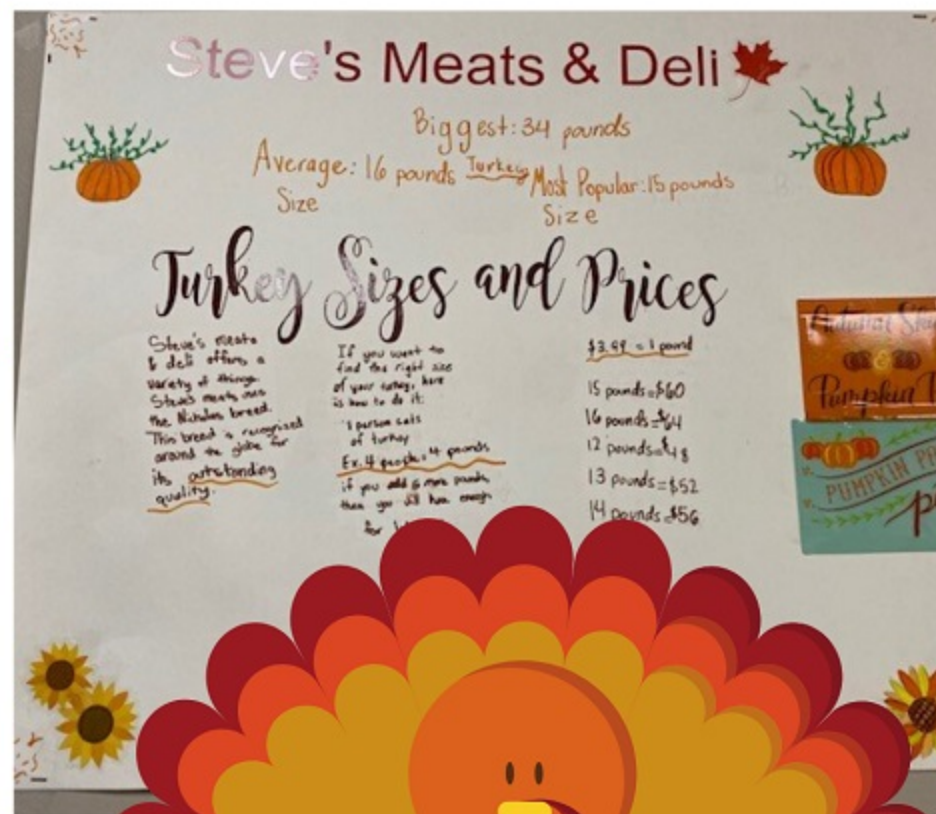 Steve's Meats & Deli
Biggest: 34 pounds
Average: 16 pounds
Size
Turkey
Most Popular: 15 pounds
Size
Turkey Sizes and Prices
Steve's meats
& deli offers a
variety of things.
Steve's meats
the Nicholas breed.
This breed is recognized
around the globe for
its outstanding
quality.
If you want to
find the right size
of your turkey, here
is how to do it:
1 person eats
of turkey
Ex. 4 people = 4 pounds
if you add 6 more pounds,
then you will have enough
for
$3.99 = 1 pound
15 pounds=$60
16 pounds=$64
12 pounds=$48
13 pounds=$52
14 pounds=$56
Autumn
Pumpkin
PUMPKIN